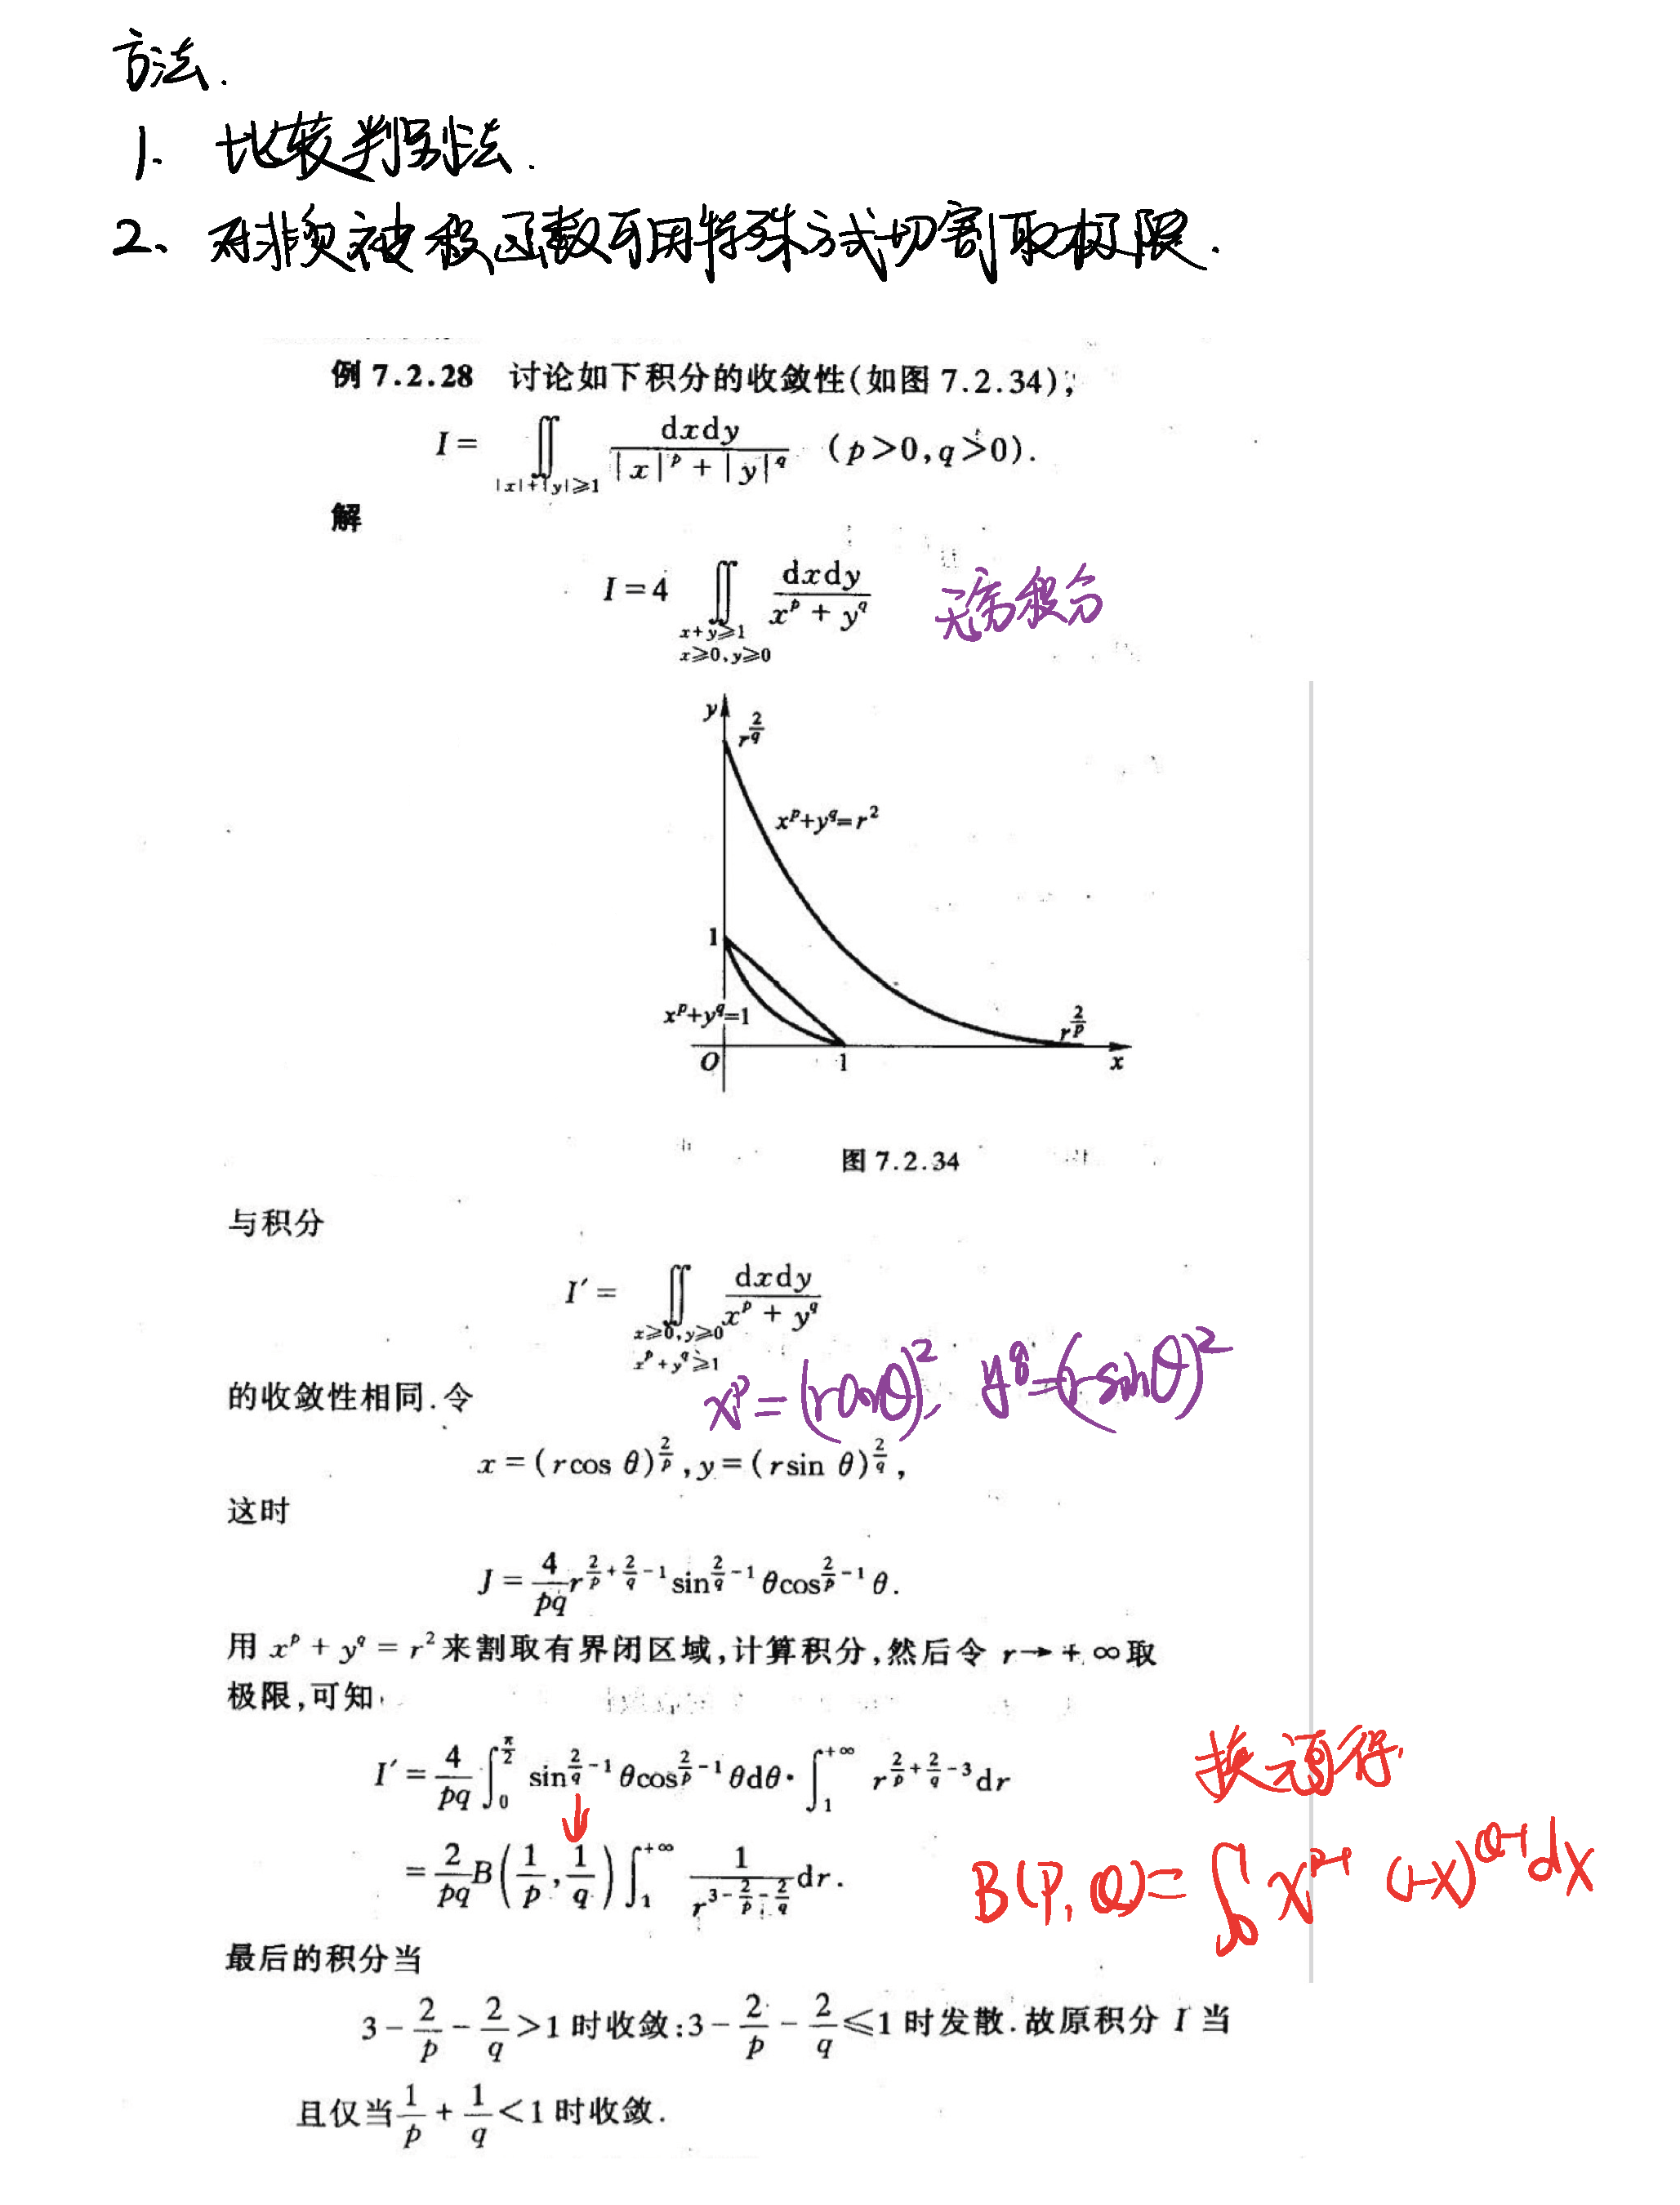 方法.
1. 比较判别法.
2、对非负被积函数可用特殊方式切割取极限.
例 7.2.28 讨论如下积分的收敛性(如图 7.2.34);
I = ∬_{|x|+|y|≥1} dxdy / (|x|^p + |y|^q) (p>0,q>0).
解
I = 4 ∬_{x+y≥1, x≥0,y≥0} dxdy / (x^p + y^q) 无穷积分
y
r^{2/q}
x^p+y^q=r^2
1
x^p+y^q=1
r^{2/p}
O 1 x
图 7.2.34
与积分
I′ = ∬_{x≥0,y≥0, x^p+y^q≥1} dxdy / (x^p + y^q)
的收敛性相同.令
x^p=(rcosθ)^2, y^q=(rsinθ)^2
x = (rcos θ)^{2/p}, y = (rsin θ)^{2/q},
这时
J = 4/(pq) r^{2/p+2/q-1} sin^{2/q-1} θ cos^{2/p-1} θ.
用 x^p + y^q = r^2 来割取有界闭区域,计算积分,然后令 r→+∞取
极限,可知
I′ = 4/(pq) ∫_0^{π/2} sin^{2/q-1} θ cos^{2/p-1} θ dθ · ∫_1^{+∞} r^{2/p+2/q-3} dr
换元可得
= 2/(pq) B(1/p, 1/q) ∫_1^{+∞} 1 / r^{3-2/p-2/q} dr.
B(P,Q)=∫_0 x^{P-1} (1-x)^{Q-1} dx
最后的积分当
3 - 2/p - 2/q > 1 时收敛;3 - 2/p - 2/q ≤ 1 时发散.故原积分 I 当
且仅当 1/p + 1/q < 1 时收敛.